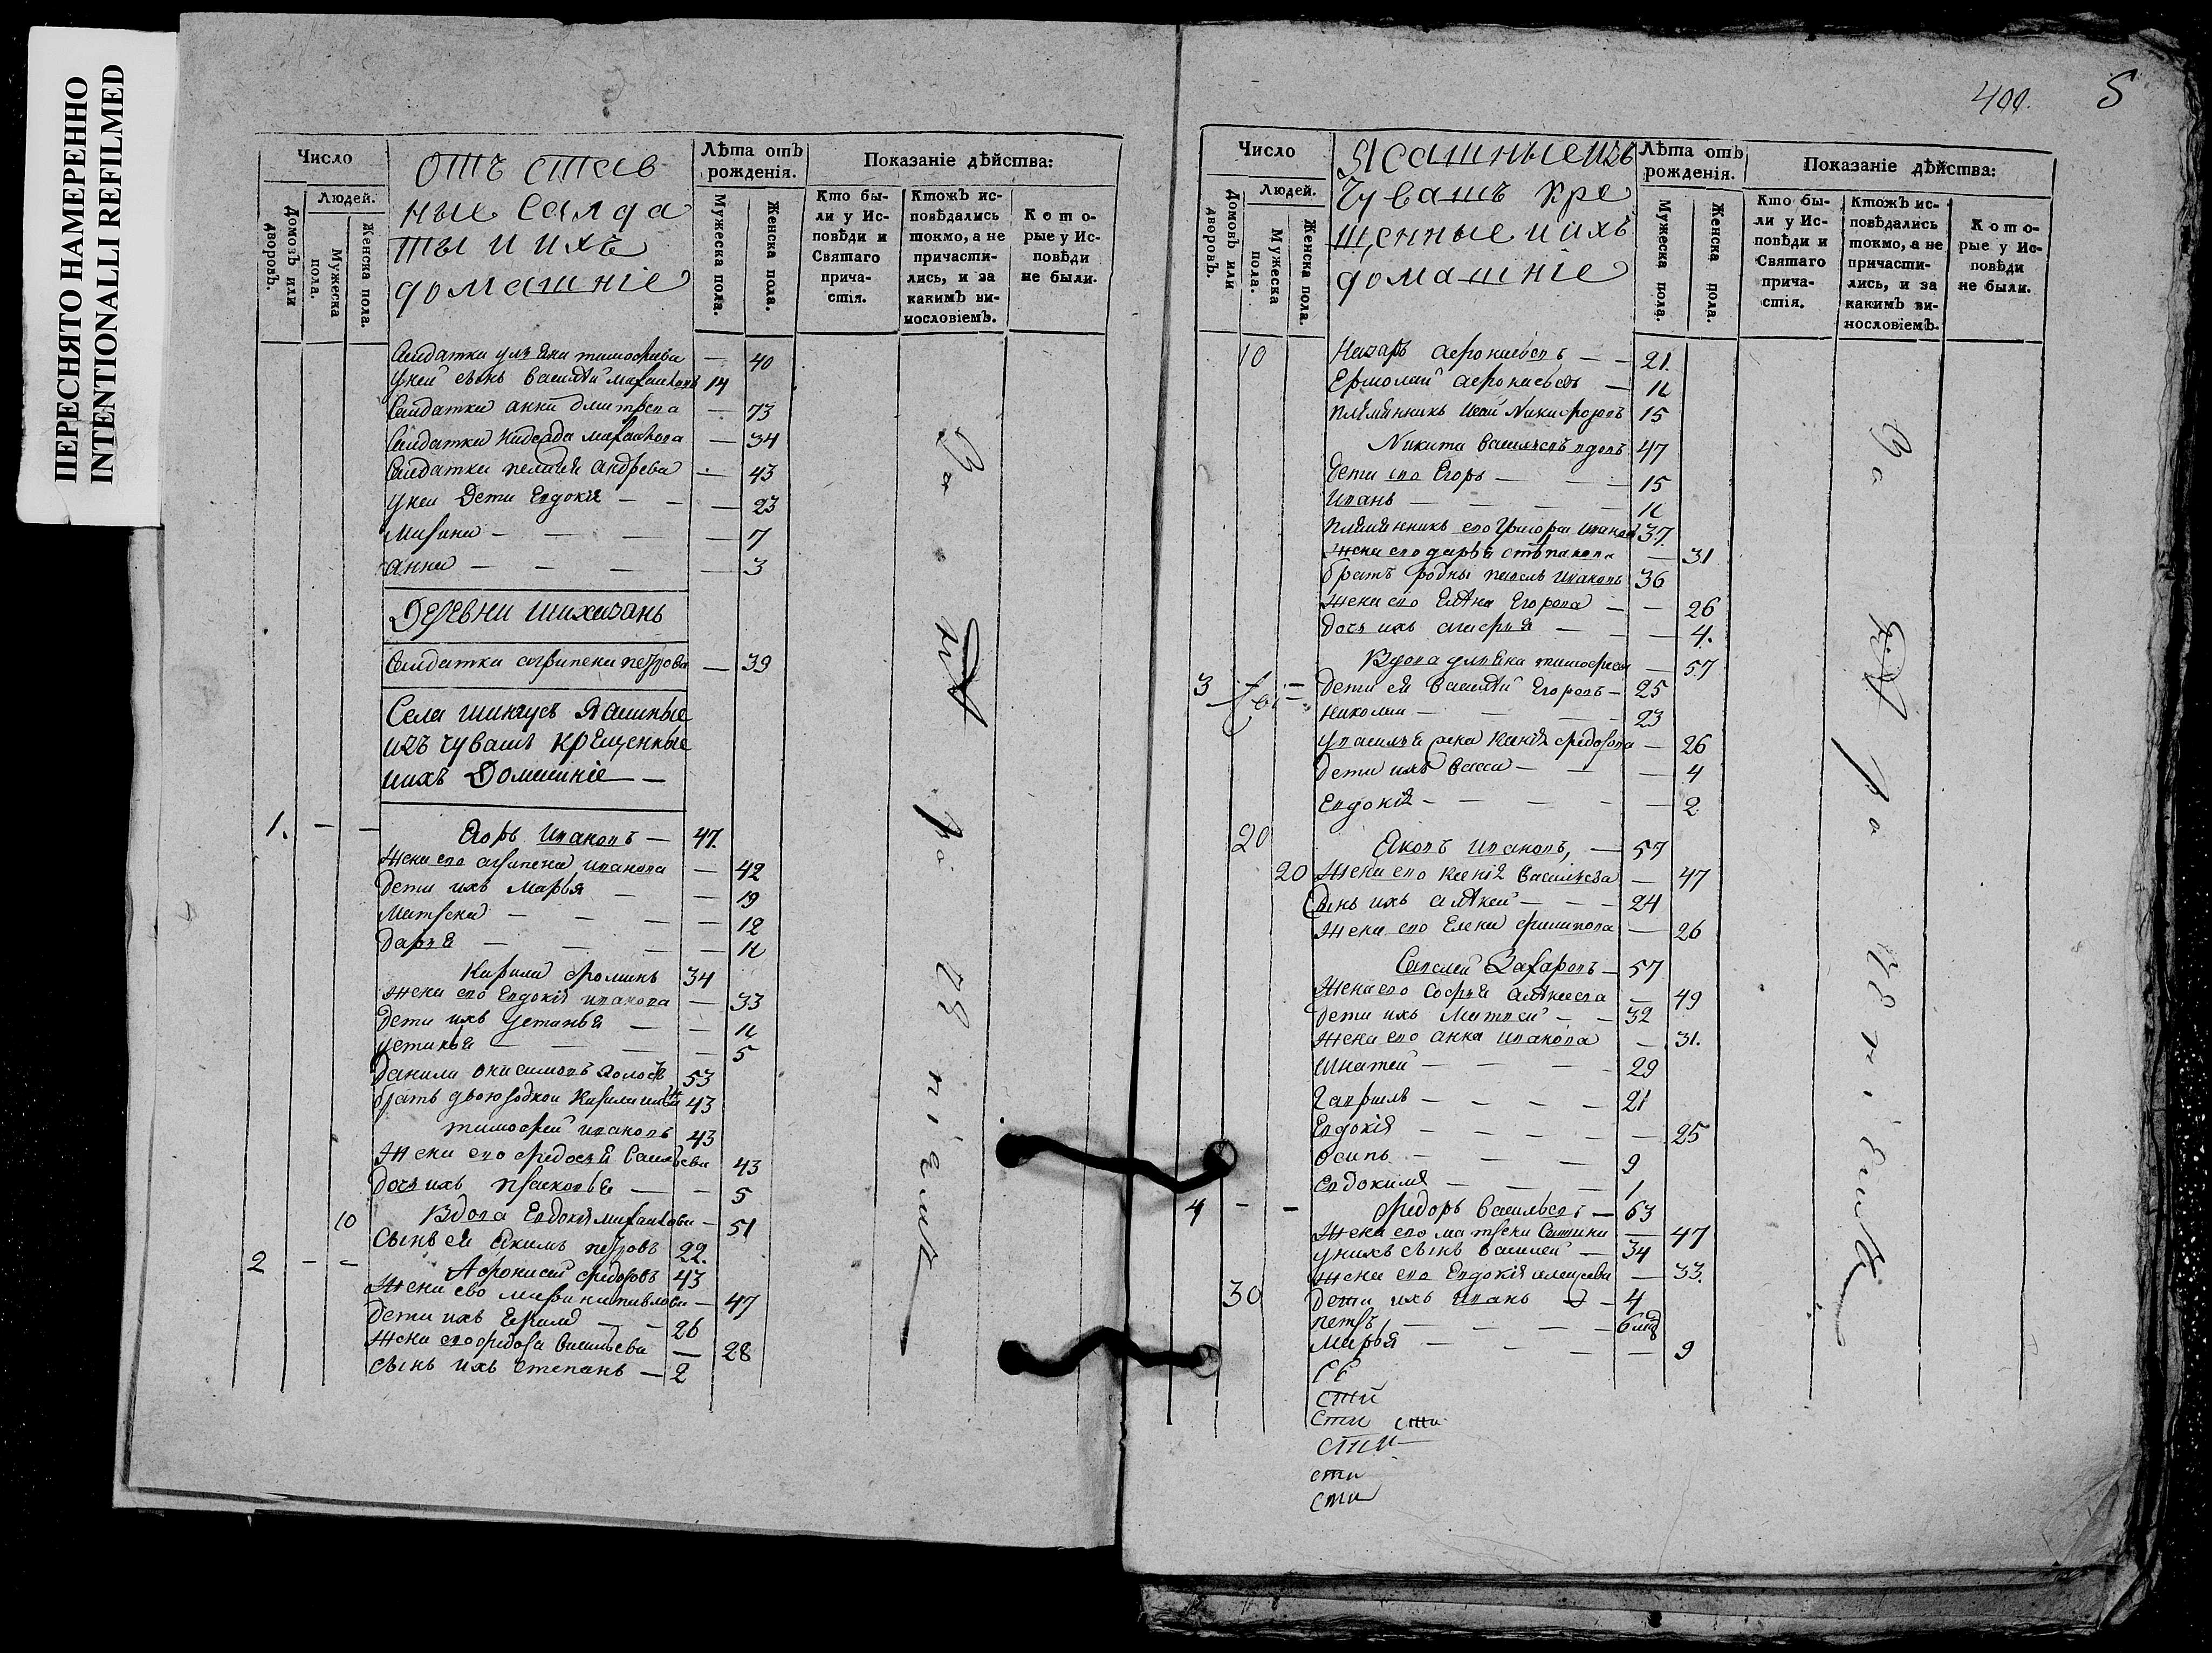 ПЕРЕСНЯТО НАМЕРЕННО
INTENTIONALLI REFILMED
Число
Людей.
Домовъ или дворовъ.
Мужеска пола.
Женска пола.
отъ став
ные салда
ты и ихъ
домашніе
Лѣта отъ рожденія.
Мужеска пола.
Женска пола.
Показаніе дѣйства:
Кто бы-
ли у Ис-
повѣди и
Святаго
прича-
стія.
Ктожъ ис-
повѣдались
токмо, а не
причасти-
лись, и за
какимъ ви-
нословіемъ.
Кото-
рые у Ис-
повѣди
не были.
Салдатка тимофѣева — 40
у ней сынъ василѣй михаиловъ 14
Салдатка анна дмитрева — 73
Салдатка михаилова — 34
Салдатка пелагея андрева — 43
у неи дети Евдокія — — 23
Марина — — 7
анна — — 3
Деревни шихазань
Салдатка агрипена петрова — 39
Села шинъусъ Ясашные
изъ чувашъ крещенные
и ихъ Домашніе —
1. — — Егоръ ивановъ — 47.
Жена ево агрипена иванова — 42
дети ихъ Марья — 19
Матрена — — 12
Дарья — — 11
Кирила фроминъ 34
Жена ево Евдокія иванова — 33
дети ихъ устинья — — 11
устинья — — 5
Данила онисимовъ холостъ 53
братъ двоюродной Кирила 43
тимофеи ивановъ 43
Жена ево федосья васильева 43
дочь ихъ прасковья — — 5
10 Вдова Евдокія михаилова — 51
сынъ ея Якимъ петровъ 22.
2 — — Афонасей федоровъ 43
Жена ево марина павлова — 47
дети ихъ — — 26
Жена ево федора васильева — 28
сынъ ихъ степанъ — 2
За не
ра
ніемъ
400. 5
Число
Людей.
Домовъ или дворовъ.
Мужеска пола.
Женска пола.
Ясашные изъ
Чувашъ кре
щенные и ихъ
домашніе
Лѣта отъ рожденія.
Мужеска пола.
Женска пола.
Показаніе дѣйства:
Кто бы-
ли у Ис-
повѣди и
Святаго
прича-
стія.
Ктожъ ис-
повѣдались
токмо, а не
причасти-
лись, и за
какимъ ви-
нословіемъ.
Кото-
рые у Ис-
повѣди
не были.
10 Назаръ афонасьевъ — — 21.
Ермолаи афонасьевъ — 11
племянникъ Никифоровъ 15
Никита васильевъ вдовъ 47
дети ево Егоръ — — 15
Иванъ — — — 11
племянникъ ево Григореи ивановъ 37.
жена ево дарья степанова — 31
братъ родны ивановъ 36
Жена ево Елена Егорова — — 26
дочь ихъ — — 4.
Вдова тимофеева — 57
3 — — дети ея василѣй Егоровъ — 25
николаи — — — 23
у василья жена Ксенія федорова — 26
дети ихъ васса — — 4
Евдокія — — — — 2
20 Яковъ ивановъ, — 57
20 Жена ево Ксенія васильева — 47
Сынъ ихъ алѣксей — — — 24
Жена ево Елена филипова — 26
Савелей Захаровъ — 57
Жена ево Софья алѣксеева — 49
дети ихъ Матвеи — — 32
Жена ево анна иванова — 31.
Игнатеи — — — 29
Гаврилъ — — — — 21
Евдокія — — — — 25
Осипъ — — — 9
Евдокимъ — — — 1
4 — — Федоръ васильевъ — 63
Жена ево матрена — 47
у нихъ сынъ василеи — 34
Жена ево Евдокія — 33.
30 дети ихъ иванъ — — 4
петръ — — — 6
Марья — — — 9
СС
сти
сти сти
сти
сти
сти
За не
ра